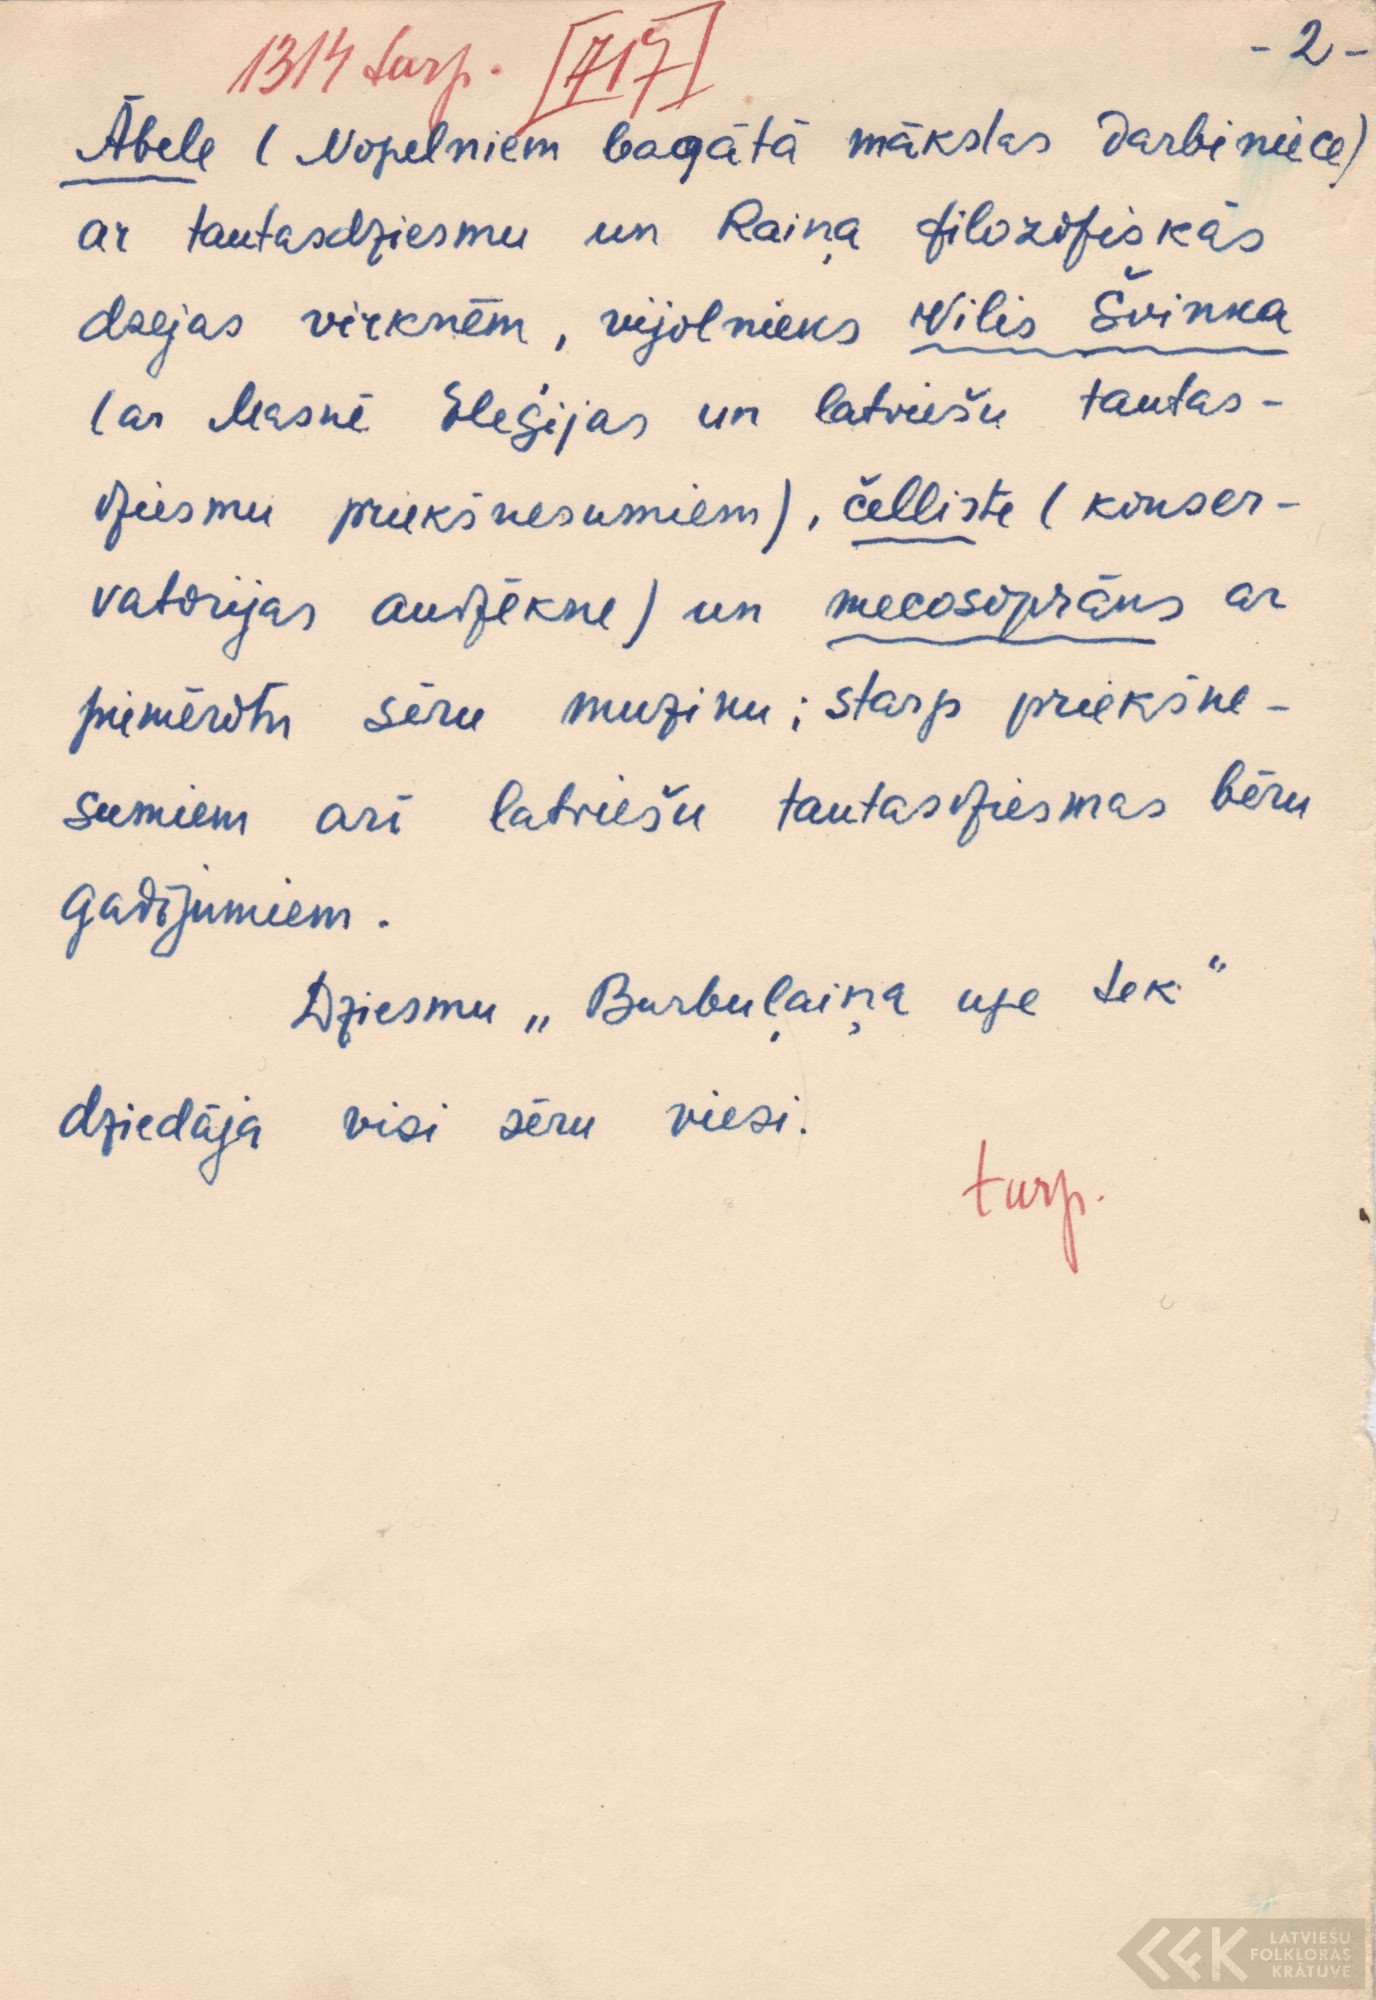 1314 turp. [717]
- 2 -
Ābele (Nopelniem bagātā mākslas darbiniece)
ar tautasdziesmu un Raiņa filozofiskās
dzejas virknēm, vijolnieks Vilis Švinka
(ar Masnē Eleģijas un latviešu tautas-
dziesmu priekšnesumiem), čelliste (konser-
vatorijas audzēkne) un mecosoprāns ar
piemērotu sēru muziku; starp priekšne-
sumiem arī latviešu tautasdziesmas bēru
gadījumiem.
Dziesmu „Burbuļaiņa upe tek"
dziedāja visi sēru viesi.
turp.
LATVIEŠU
FOLKLORAS
KRĀTUVE